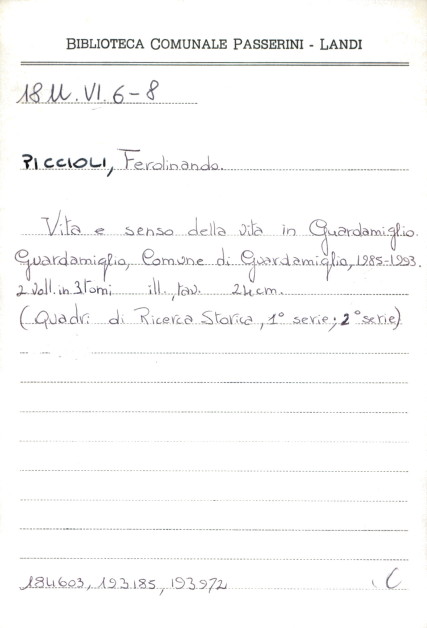 BIBLIOTECA COMUNALE PASSERINI - LANDI
18 U. VI. 6-8
PICCIOLI, Ferdinando.
Vita e senso della vita in Guardamiglio.
Guardamiglio, Comune di Guardamiglio, 1985-1993.
2 voll. in 3 tomi ill., tav. 24 cm.
(Quadri di Ricerca Storica, 1° serie; 2° serie)
184603, 193185, 193972 C